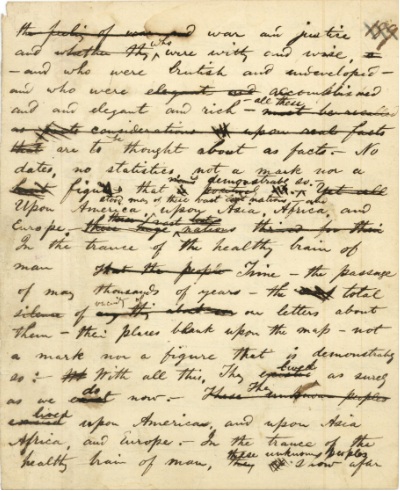 the feeling of war and war and justice
and whether they who were witty and wise,
– and who were brutish and undeveloped –
and who were elegant and accomplished
and and elegant and rich – all these must be
considerations upon facts
that are to thought about as facts. – No
dates, no statistics, not a mark nor a
figure that is demonstrably so. Yet all
Upon America, upon Asia, Africa, and
stood men of their vast nations
Europe.
In the trance of the healthy brain of
man That the people Time – the passage
of many thousands of years – the total
silence of any our letters about
them – their places blank upon the map – not
a mark nor a figure that is demonstrably
so: – With all this, They lived as surely
as we do exist now. – The These unknown peoples
lived existed upon Americas, and upon Asia
Africa, and Europe. – In the trance of the
healthy brain of man, these unknown peoples they I now afar